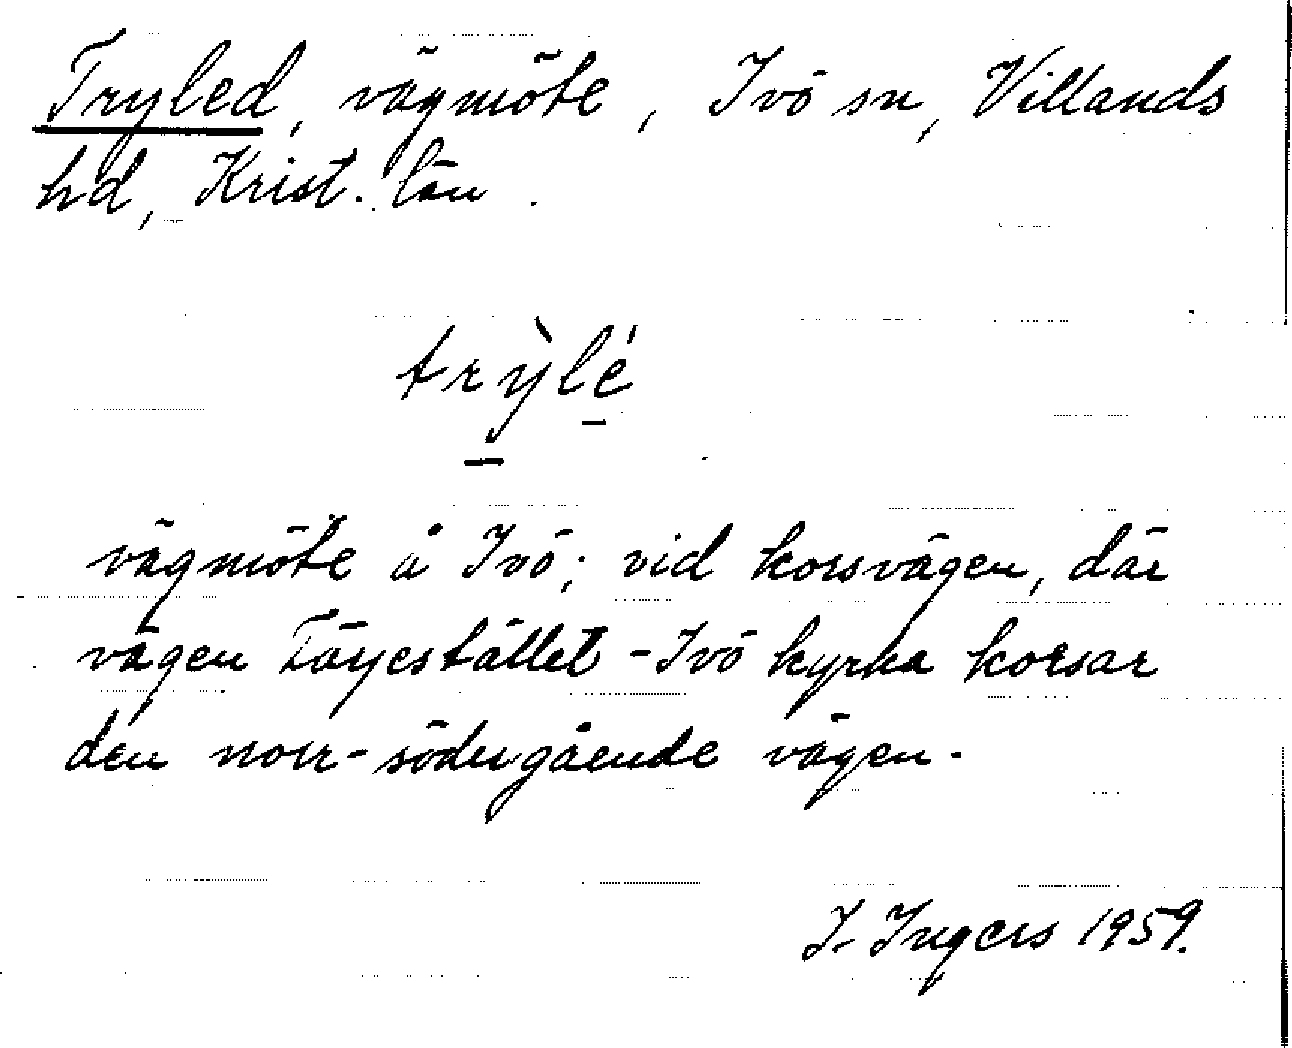 Tryled, vägmöte, Ivö sn, Villands
hd, Krist. län.
trỳlé
vägmöte å Ivö; vid korsvägen, där
vägen Färjestället - Ivö kyrka korsar
den norr-södergående vägen.
I. Ingers 1959.